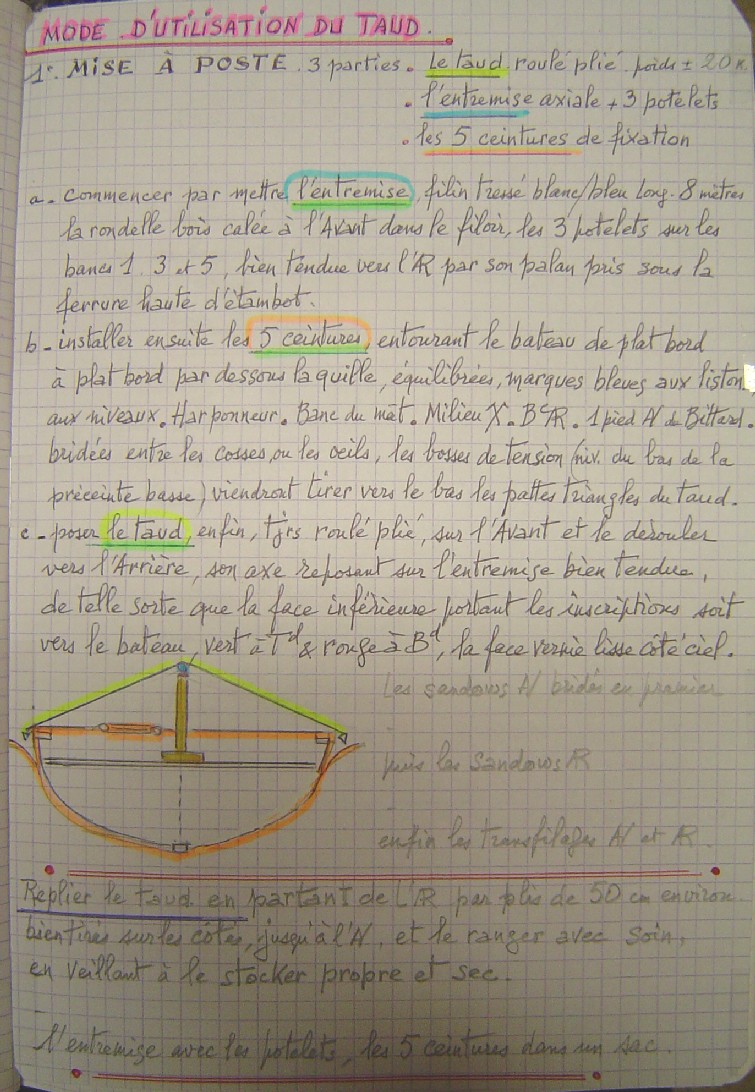 MODE D'UTILISATION DU TAUD.
1°. MISE À POSTE. 3 parties. Le taud roulé plié poids ± 20 K
. l'entremise axiale + 3 potelets
. les 5 ceintures de fixation
a. commencer par mettre l'entremise, filin tressé blanc/bleu long. 8 mètres
la rondelle bois calée à l'Avant dans le filoir, les 3 potelets sur les
bancs 1. 3 et 5, bien tendue vers l'AR par son palan pris sous la
ferrure haute d'étambot.
b - installer ensuite les 5 ceintures, entourant le bateau de plat bord
à plat bord par dessous la quille, équilibrées, marques bleues aux liston
aux niveaux. Harponneur. Banc du mât. Milieu X. Bc AR. 1 pied AV de Bittard.
bridées entre les cosses, ou les oeils, les bosses de tension (niv. du bas de la
préceinte basse) viendront tirer vers le bas les pattes triangles du taud.
c - poser le taud, enfin, tjrs roulé plié, sur l'Avant et le dérouler
vers l'Arrière, son axe reposant sur l'entremise bien tendue,
de telle sorte que la face inférieure, portant les inscriptions soit
vers le bateau, vert à Td & rouge à Bd, la face vernie lisse côté ciel.
Les sandows AV bridés en premier
puis les sandows AR
enfin les transfilages AV et AR.
Replier le taud en partant de L'AR par plis de 50 cm environ
bien tirés sur les côtés, jusqu'à l'AV, et le ranger avec soin,
en veillant à le stocker propre et sec.
l'entremise avec les potelets, les 5 ceintures dans un sac.